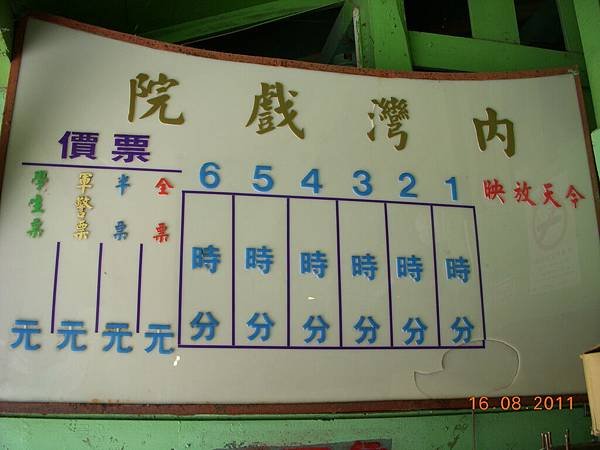 內灣戲院
今天放映
1 2 3 4 5 6
時 時 時 時 時 時
分 分 分 分 分 分
票價
全票
半票
軍警票
學生票
元 元 元 元
16.08.2011